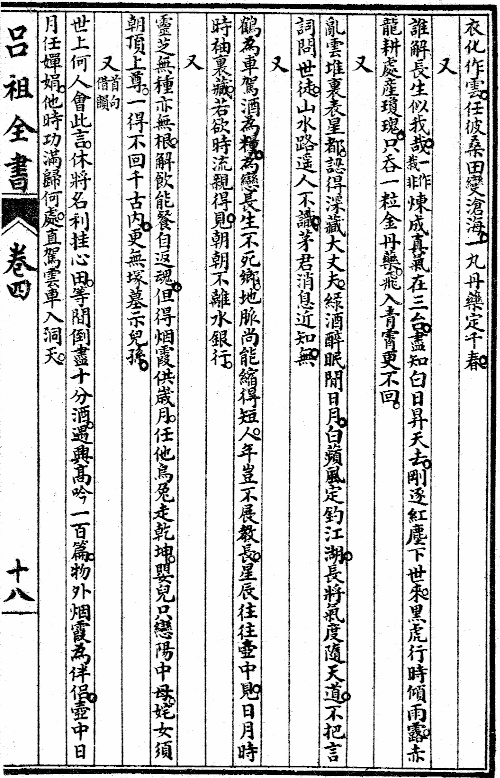 衣化作雲。任彼桑田變滄海。一丸丹藥定千春。
又
誰解長生似我哉。一作哉非煉成真氣在三台。盡知白日昇天去。剛逐紅塵下世來。黑虎行時傾雨露。赤
龍耕處產瓊瑰。只吞一粒金丹藥。飛入青霄更不回。
又
亂雲堆裏表星都。認得深藏大丈夫。綠酒醉眠閒日月。白蘋風定釣江湖。長將氣度隨天道。不把言
詞問世徒。山水路遥人不識。茅君消息近知無。
又
鶴為車駕酒為糧。為戀長生不死鄉。地脈尚能縮得短。人年豈不展教長。星辰往往壺中見。日月時
時袖裏藏。若欲時流親得見。朝朝不離水銀行。
靈芝無種亦無根。解飲能餐自返魂。但得烟霞供歲月。任他烏兔走乾坤。嬰兒只戀陽中母。姹女須
朝頂上尊。一得不回千古内。更無塚墓示兒孫。
又首句借韻
世上何人會此言。休將名利挂心田。等閒倒盡十分酒。遇興高吟一百篇。物外烟霞為伴侶。壺中日
月任嬋娟。他時功滿歸何處。直駕雲車入洞天。
呂祖全書
卷四
十八